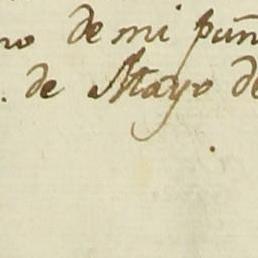 no de mi puñ
. de Mayo de